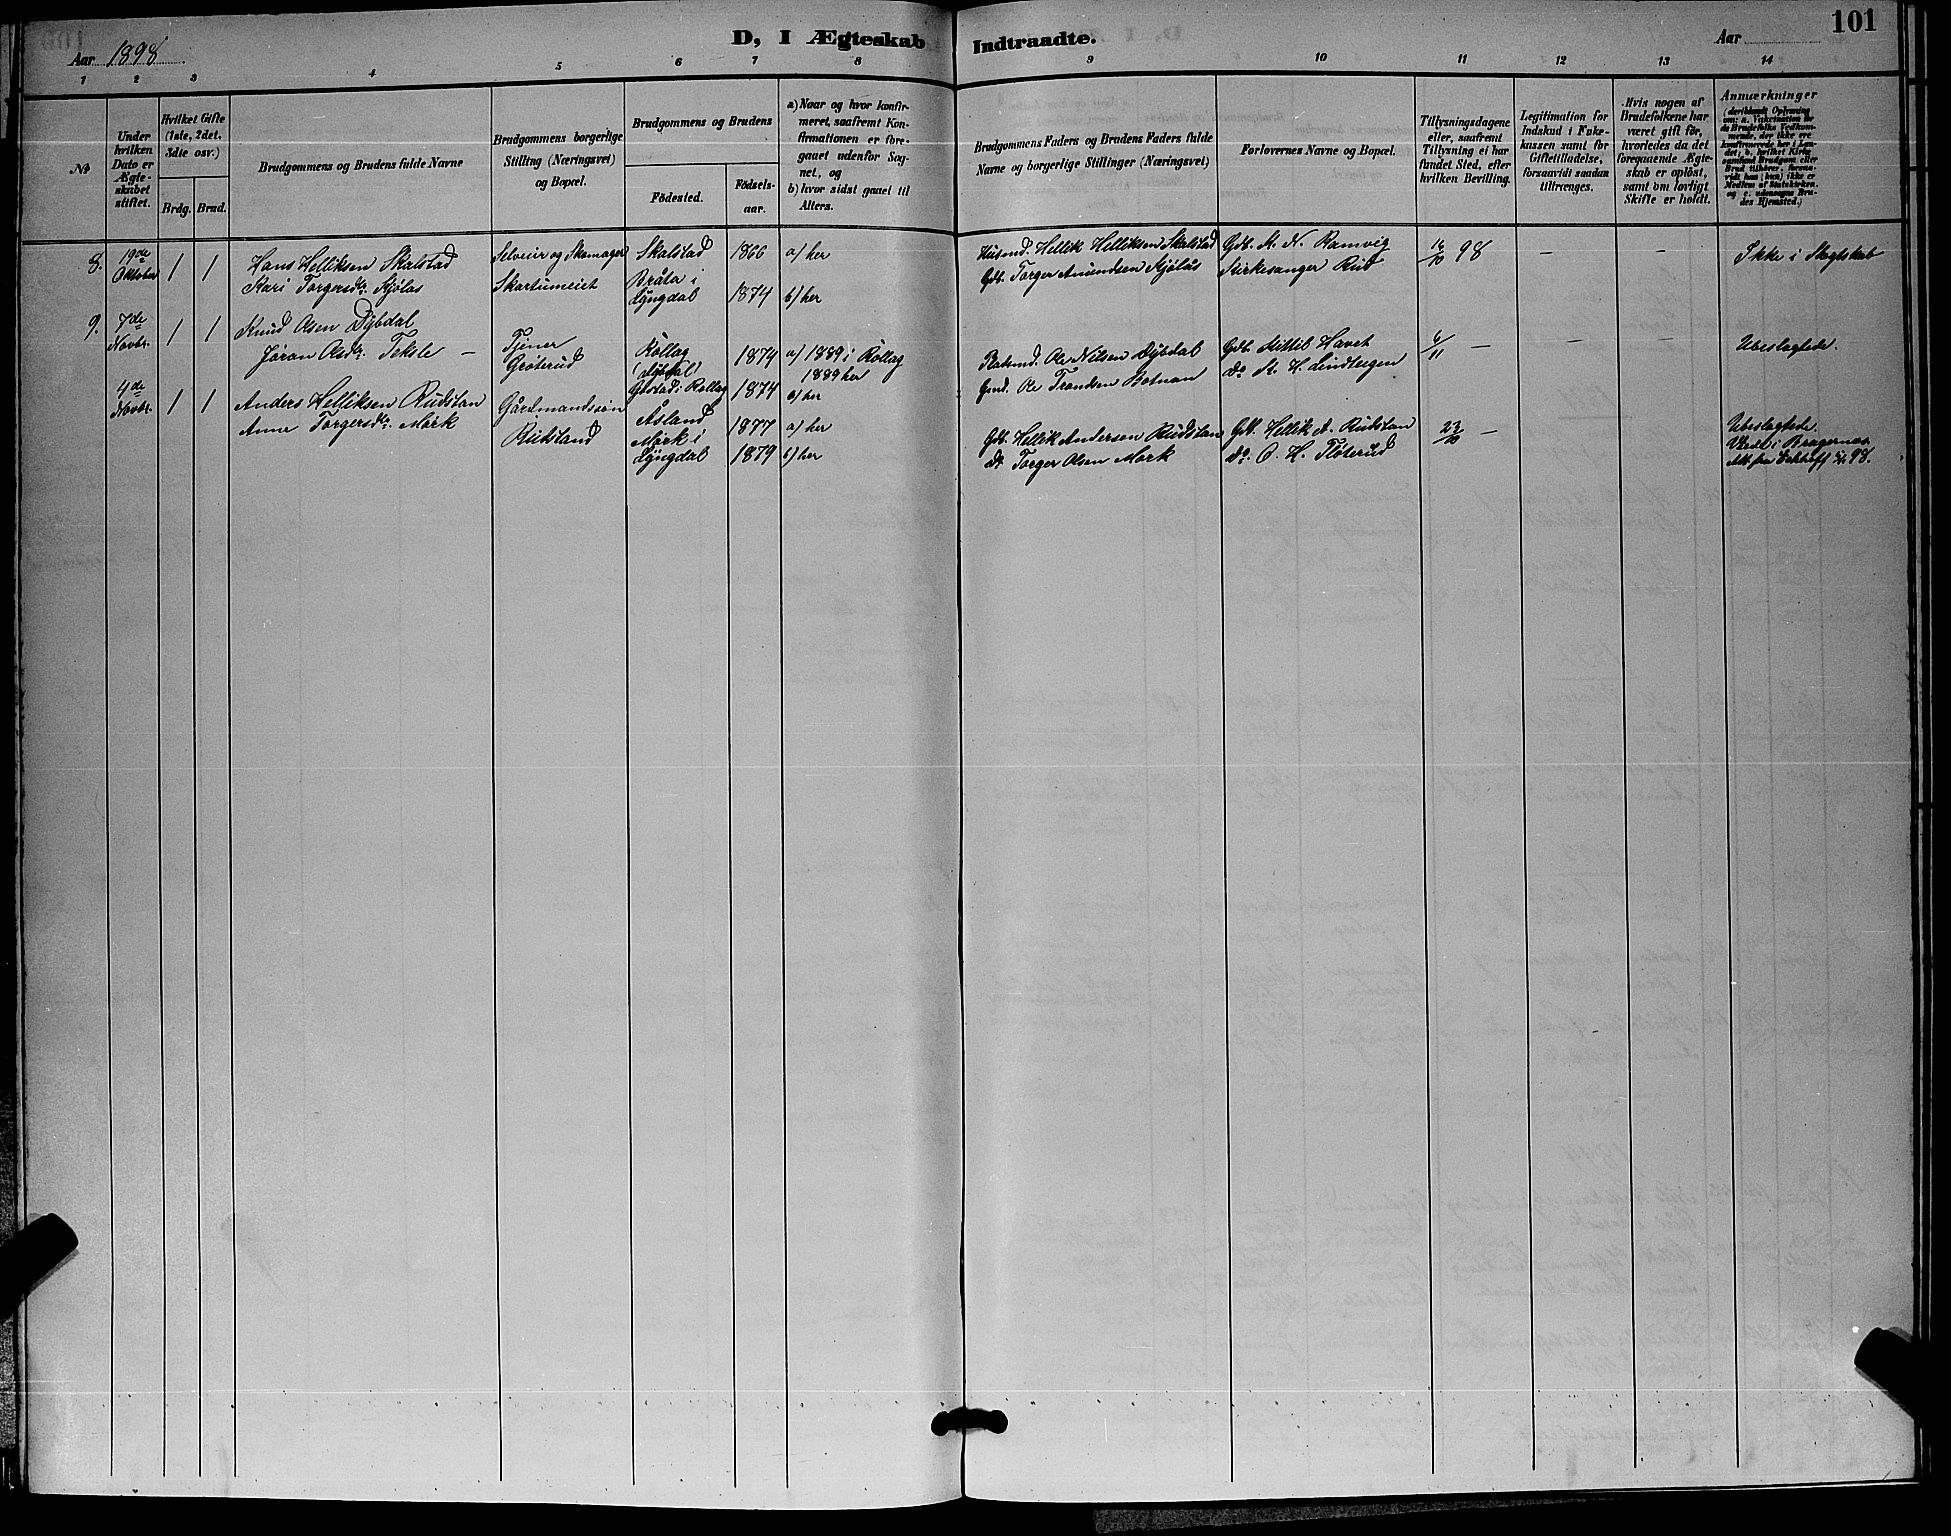 D, I Ægteskab Indtraadte.
101
Aar 1898.
Aar
1 2 3 4 5 6 7 8 9 10 11 12 13 14
No
Under hvilken Dato er Ægteskabet stiftet.
Hvilket Gifte (1ste, 2det, 3die osv.)
Brdg. Brud.
Brudgommens og Brudens fulde Navne
Brudgommens borgerlige Stilling (Næringsvei) og Bopæl.
Brudgommens og Brudens
Födested.
Födsels-aar.
a) Naar og hvor konfirmeret, saafremt Konfirmationen er foregaaet udenfor Sognet, og
b) hvor sidst gaaet til Alters.
Brudgommens Faders og Brudens Faders fulde Navne og borgerlige Stillinger (Næringsvei)
Forlovernes Navne og Bopæl.
Tillysningsdagene eller, saafremt Tillysning ei har fundet Sted, efter hvilken Bevilling.
Legitimation for Indskud i Enkekassen samt for Giftetilladelse, forsaavidt saadan tiltrænges.
Hvis nogen af Brudefolkene har været gift för, hvorledes da det foregaaende Ægteskab er oplöst, samt om lovligt Skifte er holdt.
Anmærkninger
8. 19de Oktober 1 1
Hans Helliksen Skalstad
Kari Torgersdr. Kjölås
Selveier og Skomager
Skartumeiet
Skalstad 1866 a) her
Bråta i Lyngdal 1874 b) her
Husmd. Hellik Helliksen Skalstad
Gdb. Torger Amundsen Kjölås
Gdb. K. N. Ramvig
Kirkesanger Rud
16/10 98 — — —
Ikke i Slegtskab
9. 7de Novbr. 1 1
Knud Olsen Dybdal
Jöran Olsdr. Teksle —
Tjener
Gröterud
Rollag (Dybdal) 1874 a) 1889 i Rollag
1889 her
i Rollag 1874 b) her
Ole Nilsen Dybdal
Gmd. Ole Trondsen Botnan
Gdb. Kittil Havet
Do K. H. Lindteigen
6/11 — — —
Ubeslegtede.
4de Novbr. 1 1
Anders Helliksen Rudstan
Anne Torgersdr. Mörk
Gårdmandssön
Rudstand
Åsland 1877 a) her
Mörk i Lyngdal 1879 b) her
Gdb. Hellik Andersen Rudstan
Do Torger Olsen Mörk
Gdb. Hellik A. Rudstan
Do. O. H. Flöterud
23/10 —
Ubeslegtede.
Viede i Bragernes
Att. fra 98.